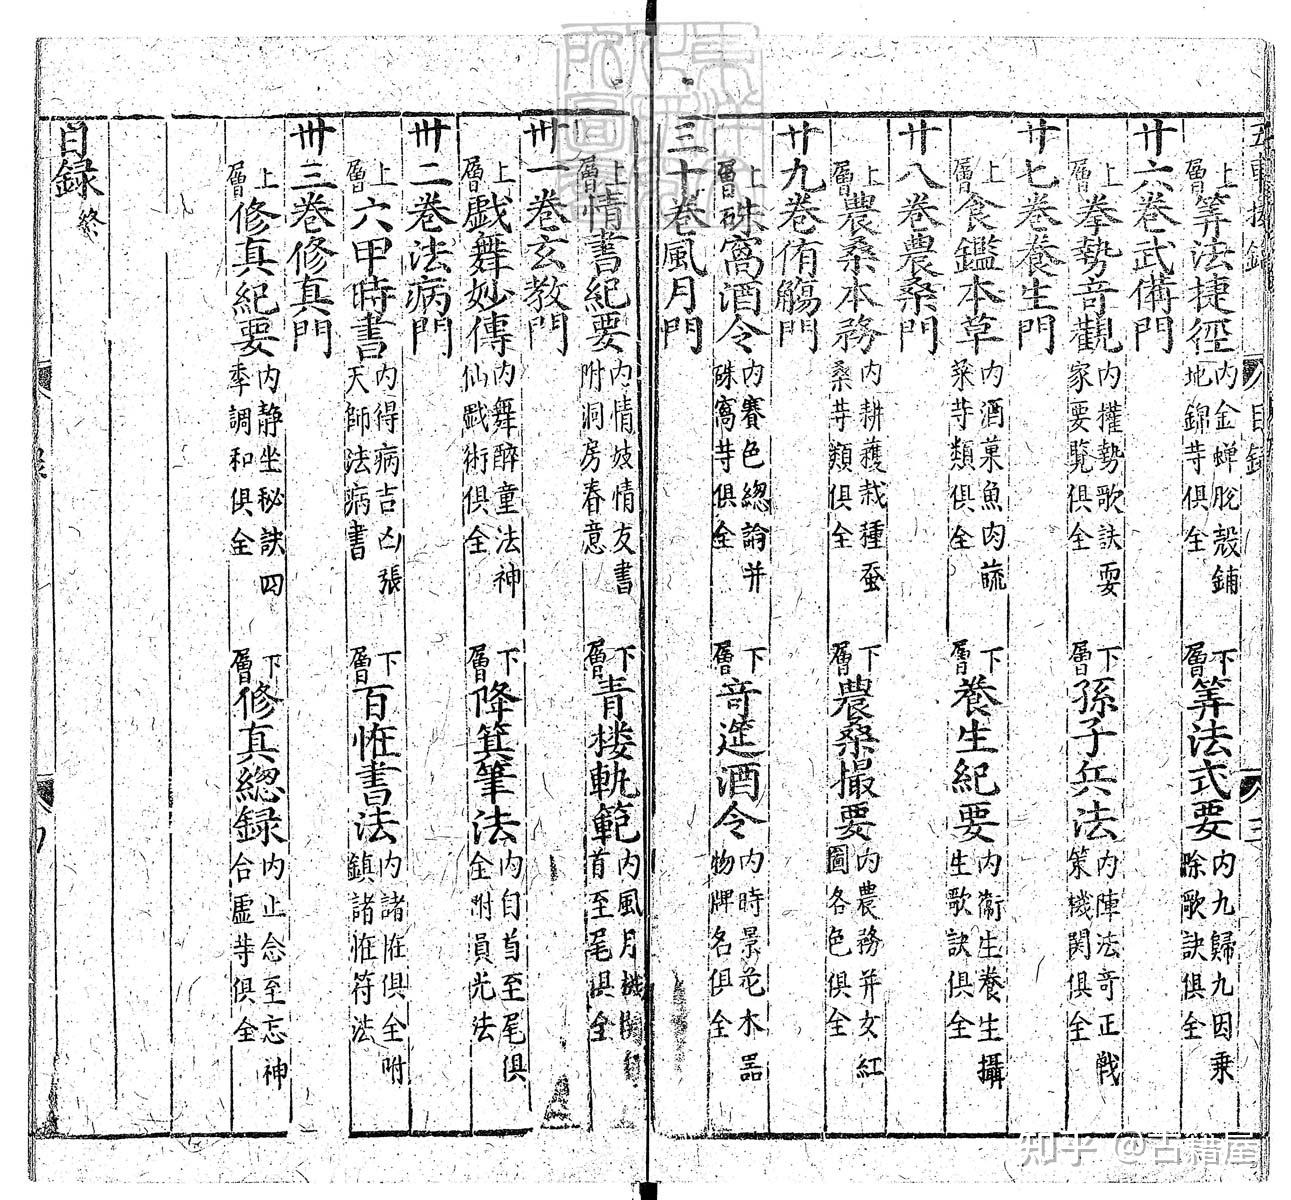 上層筭法捷徑 内金蟬脱殼鋪地錦䓁俱全 下層筭法式要 内九歸九因乗除歌訣俱全
廿六卷武備門
上層拳勢竒觀 内權勢歌訣耍家要覧俱全 下層孫子兵法 内陣法竒正戦策機関俱全
廿七卷養生門
上層食鑑本草 内酒菓魚肉蔬菜䓁類俱全 下層養生紀要 内衛生養生攝生歌訣俱全
廿八卷農桑門
上層農桑本務 内耕穫栽種蚕桑䓁類俱全 下層農桑撮要 内農務并女紅圖各色俱全
廿九卷侑觴門
上層硃窩酒令 内賽色總論并硃窩䓁俱全 下層竒筵酒令 内時景花木器物牌名俱全
三十卷風月門
上層情書紀要 内情妓情友書附洞房春意 下層青楼軌範 内風月機関首至尾俱全
卅一卷玄教門
上層戱舞妙傳 内舞醉童法神仙戱術俱全 下層降箕筆法 内自首至尾俱全附員光法
卅二卷法病門
上層六甲時書 内得病吉凶張天師法病書 下層百恠書法 内諸恠俱全附鎮諸恠符法
卅三卷修真門
上層修真紀要 内静坐秘訣四季調和俱全 下層修真總録 内止念至忘神合虚䓁俱全
目録終
目録
三
知乎 @古籍屋